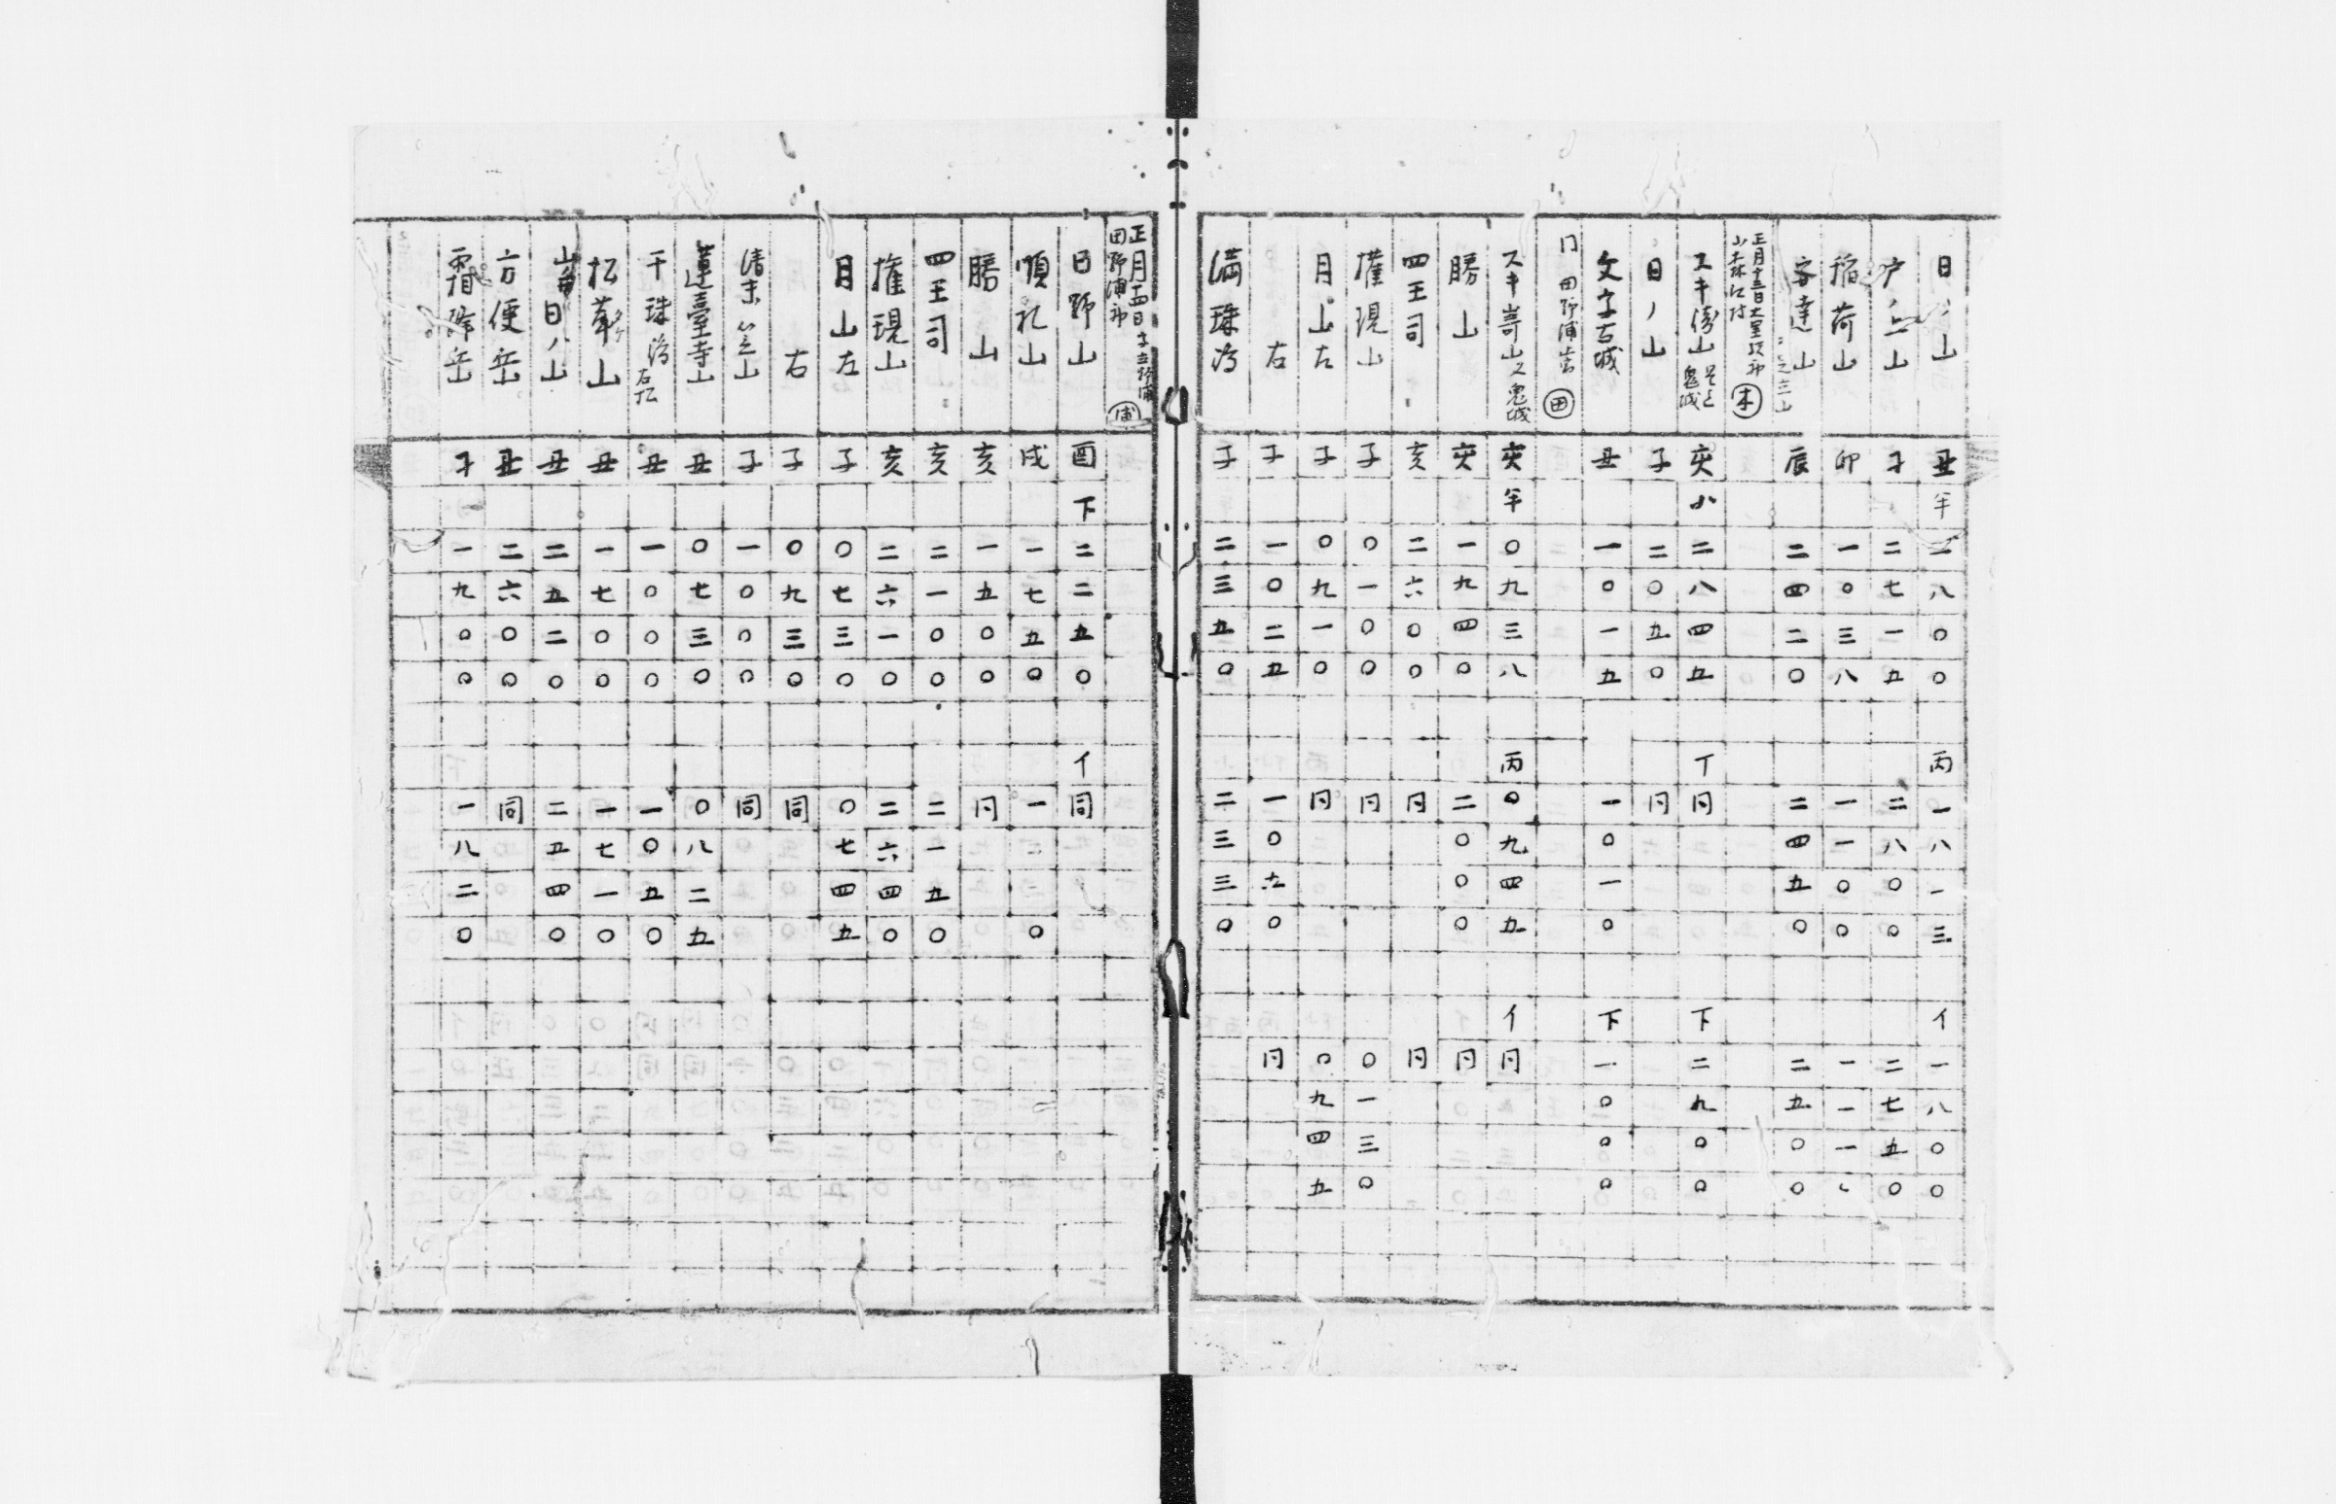 日ノ山 丑 半 一八〇〇 丙 一八一三 イ 一八〇〇
戸ノ上山 子 二七一五 二八〇〇 二七五〇
稲荷山 卯 一〇三八 一一〇〇 一一一
客達山 辰 二四二〇 二四五〇 二五〇〇
正月十三日大里
小森江村 本
スキ嵜山 鬼城 亥 小 二八四五 丁 同 下 二九〇〇
日ノ山 子 二〇五〇 同
文字古城 丑 一〇一五 一〇一〇 下 一〇〇〇
同 田野浦 田
スキ嵜山 又鬼城 亥 半 〇九三八 丙 〇九四五 イ 同
勝山 亥 一九四〇 二〇〇〇 同
四王司 亥 二六〇〇 同 同
権現山 子 〇一〇〇 同 〇一三〇
月山左 子 〇九一〇 同 〇九四五
右 子 一〇二五 一〇六〇 同
満珠 子 二三五〇 二三三〇
正月十四日
田野浦 浦
日野山 酉 下 二二五〇 イ 同
順礼山 戌 一七五〇 一 〇
勝山 亥 一五〇〇 同
四王司 亥 二一〇〇 二一五〇
権現山 亥 二六一〇 二六四〇
月山左 子 〇七三〇 〇七四五
右 子 〇九三〇 同
清末 山 子 一〇〇〇 同
蓮臺寺山 丑 〇七三〇 〇八二五
干珠 丑 一〇〇〇 一〇五〇
松 山 丑 一七〇〇 一七一〇
日ノ山 丑 二五二〇 二五四〇
方便岳 丑 二六〇〇 同
霜降岳 子 一九〇〇 一八二〇